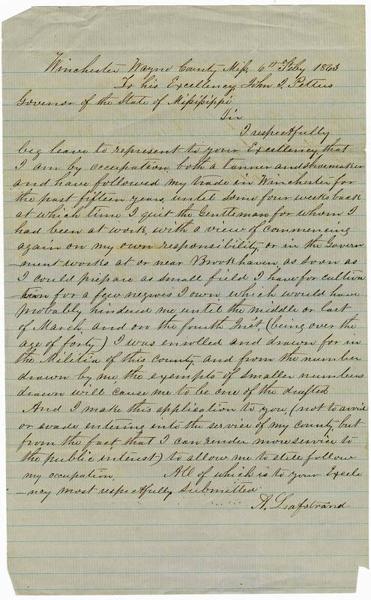 Winchester Wayne County Miss 6th Feby 1863
To his Excellency John J. Pettus
Governor of the State of Mississippi
Sir
I respectfully
beg leave to represent to your Excellency that
I am by occupation both a tanner and shoemaker
and have followed my trade in Winchester for
the past fifteen years, until some four weeks back
at which time I quit the Gentleman for whom I
had been at work, with a view of commencing
again on my own responsibility or in the Govern
ment works at or near Brookhaven, as soon as
I could prepare as small field I have for cultiva
-tion for a few negroes I own which would have
probably hindered me until the middle or last
of March, and on the fourth Inst, (being over the
age of forty) I was enrolled and drawn for in
the Militia of this County and from the number
drawn by me the exempts of smaller numbers
drawn will cause me to be one of the drafted
And I make this application to you (not to avoid
or evade entering into the service of my county but
from the fact that I can render more service to
the public interest) to allow me to still follow
my occupation. All of which is to your Excele
-ncy most respectfully submitted
A. Leafstrand